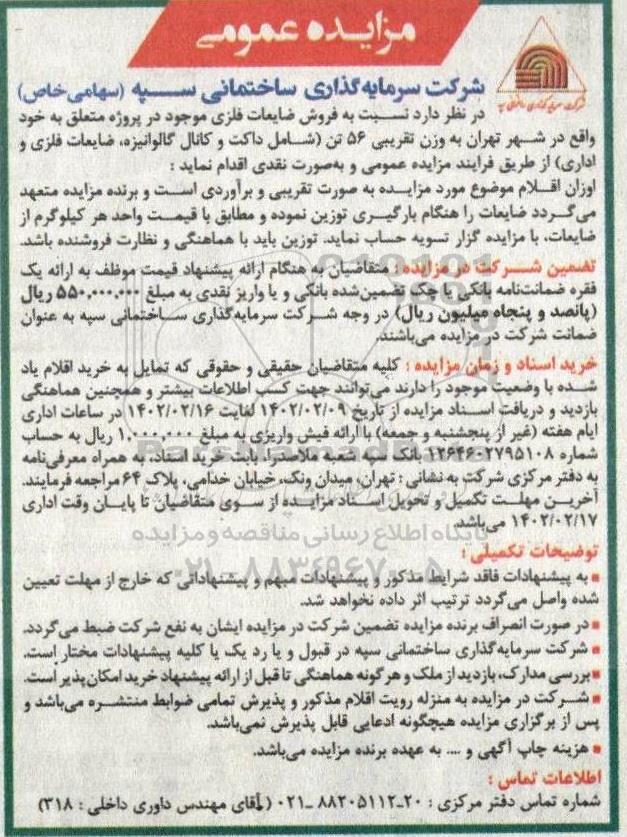 مزایده عمومی
شرکت سرمایه‌گذاری ساختمانی سپه (سهامی خاص)
در نظر دارد نسبت به فروش ضایعات فلزی موجود در پروژه متعلق به خود
واقع در شهر تهران به وزن تقریبی ۵۶ تن (شامل داکت و کانال گالوانیزه، ضایعات فلزی و
اداری) از طریق فرایند مزایده عمومی و به‌صورت نقدی اقدام نماید :
اوزان اقلام موضوع مورد مزایده به صورت تقریبی و برآوردی است و برنده مزایده متعهد
می‌گردد ضایعات را هنگام بارگیری توزین نموده و مطابق با قیمت واحد هر کیلوگرم از
ضایعات، با مزایده گزار تسویه حساب نماید. توزین باید با هماهنگی و نظارت فروشنده باشد.
تضمین شرکت در مزایده : متقاضیان به هنگام ارائه پیشنهاد قیمت موظف به ارائه یک
فقره ضمانت‌نامه بانکی یا چک تضمین‌شده بانکی و یا واریز نقدی به مبلغ ۵۵۰,۰۰۰,۰۰۰ ریال
(پانصد و پنجاه میلیون ریال) در وجه شرکت سرمایه‌گذاری ساختمانی سپه به عنوان
ضمانت شرکت در مزایده می‌باشند.
خرید اسناد و زمان مزایده : کلیه متقاضیان حقیقی و حقوقی که تمایل به خرید اقلام یاد
شده با وضعیت موجود را دارند می‌توانند جهت کسب اطلاعات بیشتر و همچنین هماهنگی
بازدید و دریافت اسناد مزایده از تاریخ ۱۴۰۲/۰۲/۰۹ لغایت ۱۴۰۲/۰۲/۱۶ در ساعات اداری
ایام هفته (غیر از پنجشنبه و جمعه) با ارائه فیش واریزی به مبلغ ۱,۰۰۰,۰۰۰ ریال به حساب
شماره ۱۲۶۴۶۰۲۷۹۵۱۰۸ بانک سپه شعبه ملاصدرا بابت خرید اسناد، به همراه معرفی‌نامه
به دفتر مرکزی شرکت به نشانی : تهران، میدان ونک، خیابان خدامی، پلاک ۶۴ مراجعه فرمایند.
آخرین مهلت تکمیل و تحویل اسناد مزایده از سوی متقاضیان تا پایان وقت اداری
۱۴۰۲/۰۲/۱۷ می‌باشد.
پایگاه اطلاع رسانی مناقصه و مزایده
۰۲۱-۸۸۳۴۹۶۷۰-۵
توضیحات تکمیلی :
■ به پیشنهادات فاقد شرایط مذکور و پیشنهادات مبهم و پیشنهاداتی که خارج از مهلت تعیین
شده واصل می‌گردد ترتیب اثر داده نخواهد شد.
■ در صورت انصراف برنده مزایده تضمین شرکت در مزایده ایشان به نفع شرکت ضبط می‌گردد.
■ شرکت سرمایه‌گذاری ساختمانی سپه در قبول و یا رد یک یا کلیه پیشنهادات مختار است.
■ بررسی مدارک، بازدید از ملک و هرگونه هماهنگی تا قبل از ارائه پیشنهاد خرید امکان‌پذیر است.
■ شرکت در مزایده به منزله رویت اقلام مذکور و پذیرش تمامی ضوابط منتشره می‌باشد و
پس از برگزاری مزایده هیچگونه ادعایی قابل پذیرش نمی‌باشد.
■ هزینه چاپ آگهی و .... به عهده برنده مزایده می‌باشد.
اطلاعات تماس :
شماره تماس دفتر مرکزی : ۲۰-۸۸۲۰۵۱۱۲-۰۲۱ (آقای مهندس داوری داخلی : ۳۱۸)